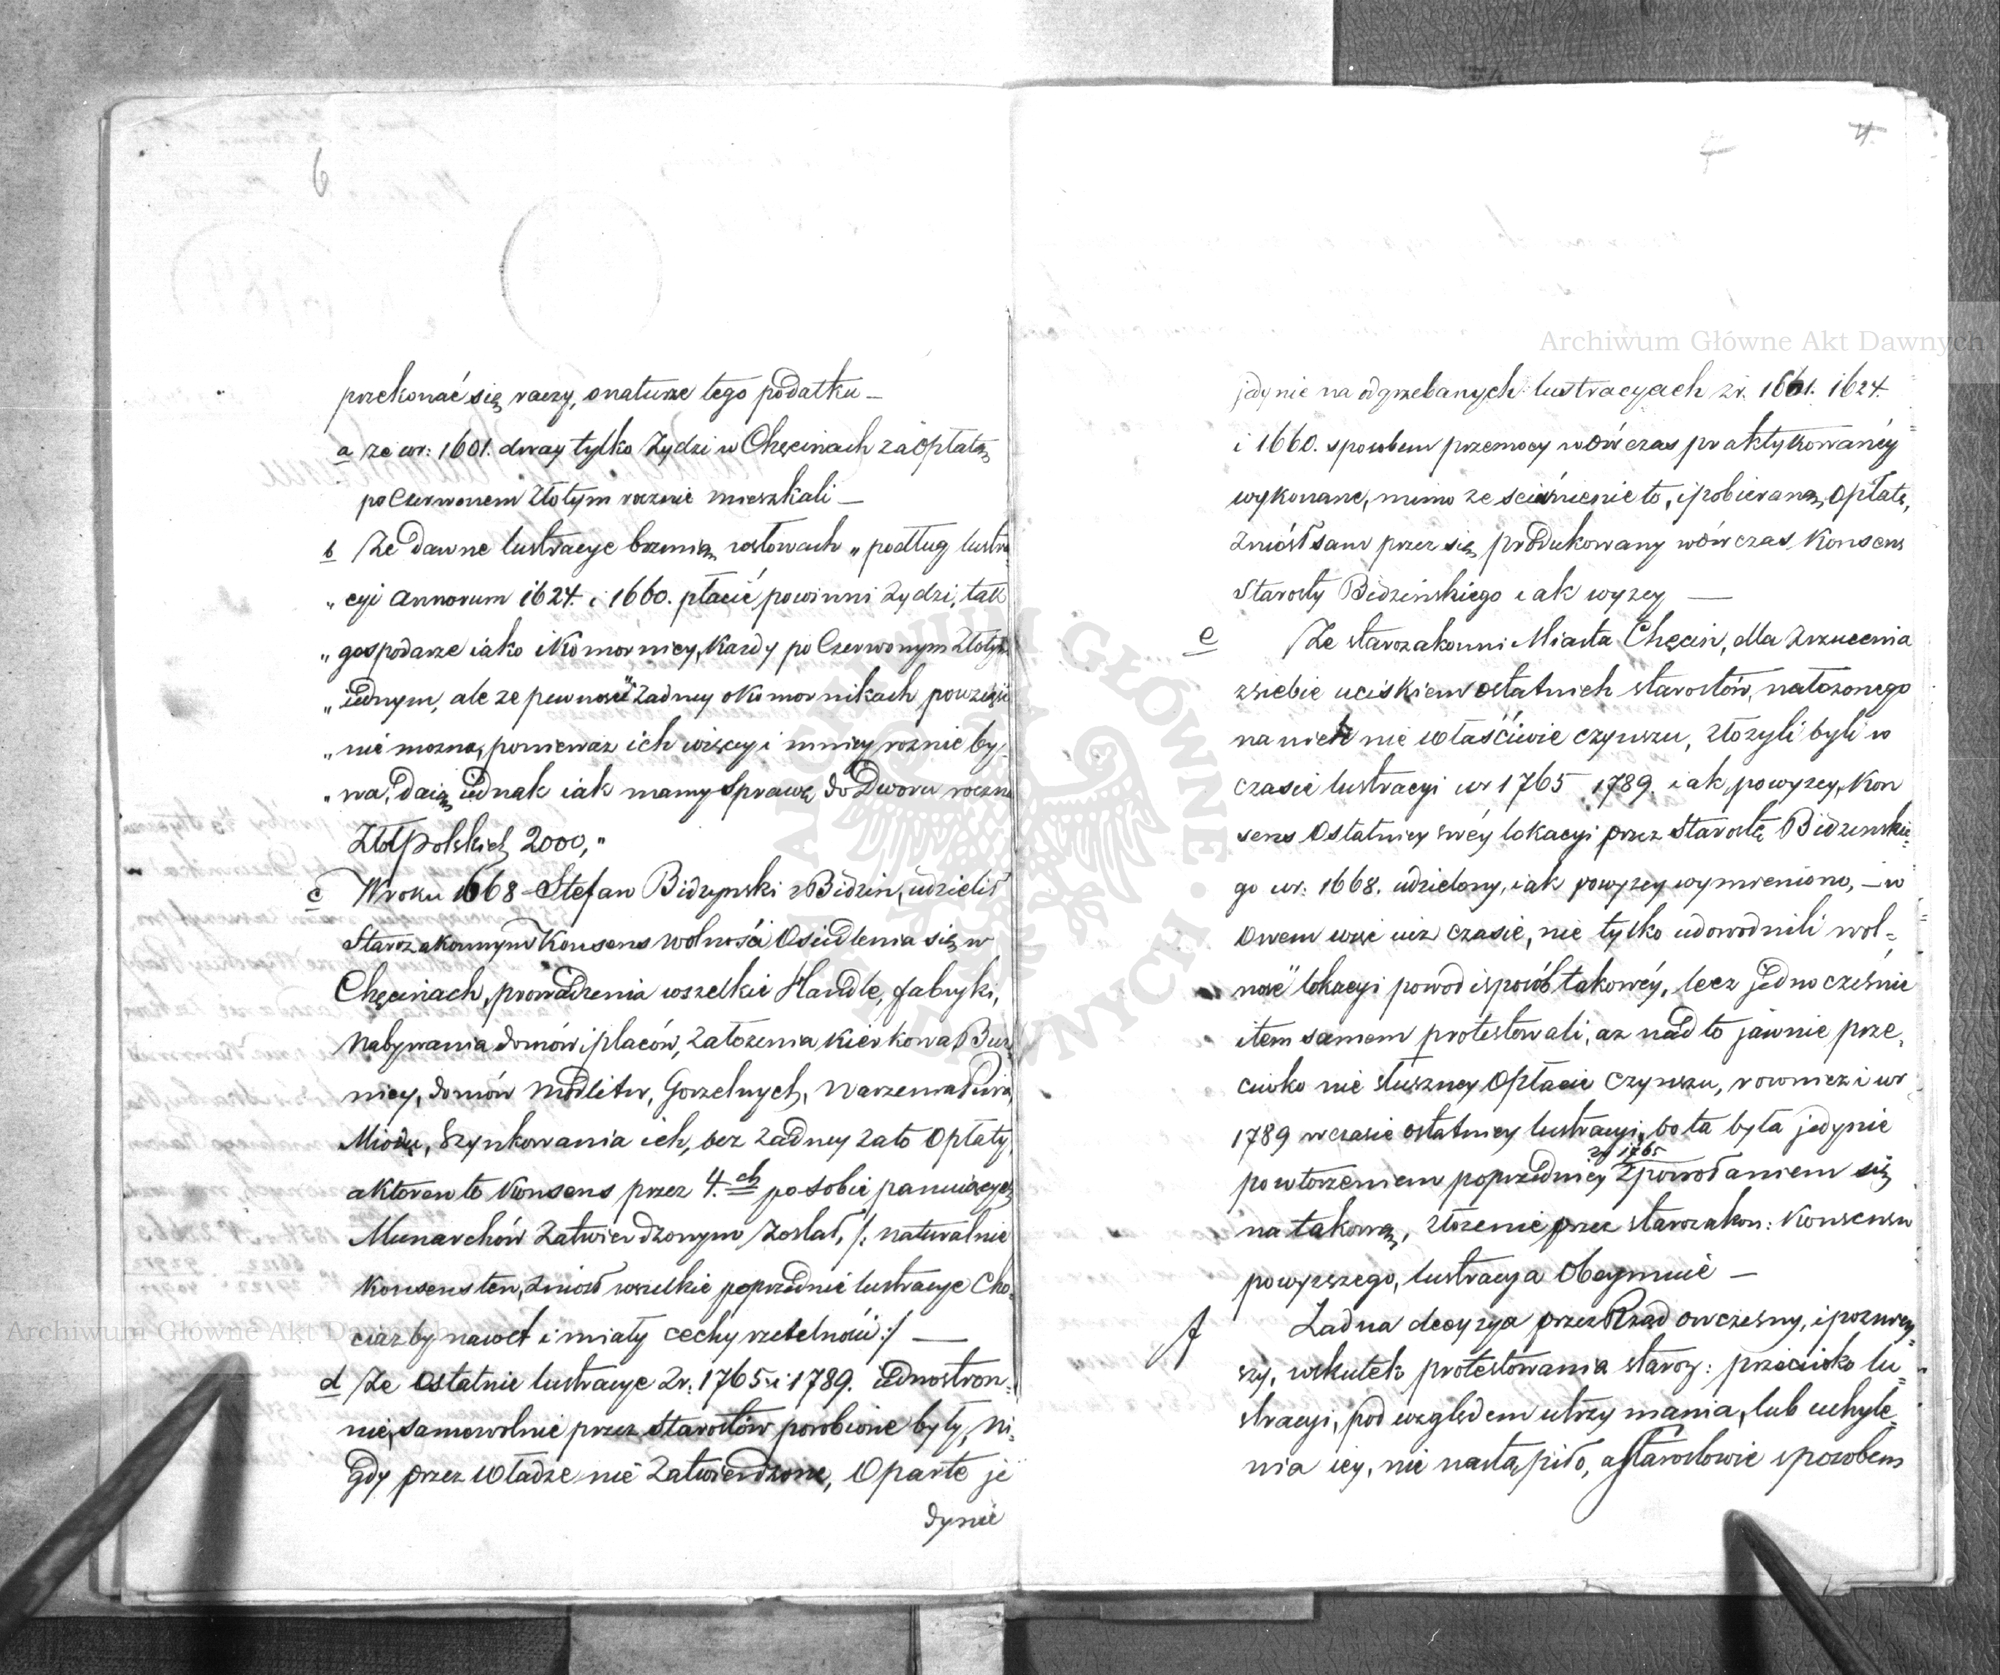 6
przekonać się raczy, o naturze tego podatku —
a że w r: 1601. dway tylko Żydzi w Chęcinach za opłatą
po Czerwonem Złotym rocznie mieszkali —
b Że dawne lustracye brzmią w słowach „podług lustra-
„cyi Annorum 1624. i 1660. płacić powinni Żydzi, tak
„gospodarze iako i Komornicy, Każdy po Czerwonym Złotym
„iednym, ale że pewności żadney o Komornikach powziąść
„nie można, ponieważ ich więcey i mniey roznie by-
„wa, daią iednak iak mamy sprawę do Dworu roczne
Złot polskich 2000,"
c W roku 1668 Stefan Bidzynski z Bidzin, udzielił
Starozakonnym Konsens wolności Osiedlenia się w
Chęcinach, prowadzenia wszelkie Handle, fabryki,
Nabywania domów i placów, Założenia Kierkowa Buż-
nicy, domów Modlitw, Gorzelnych, Warzenia Piwa,
Miodu, Szynkowania ich, bez żadney zato Opłaty,
a ktoren to Konsens przez 4.ch po sobie panuiących
Monarchów Zatwierdzonym Został, /: naturalnie
Konsens ten, zniosł wszelkie poprzednie lustracye Cho-
ciaż by nawet i miały cechy rzetelności :/ —
d Że Ostatnie lustracye z r. 1765 i 1789. iednostron-
nie, samowolnie przez Starostów porobione były, Ni-
gdy przez Władze nie Zatwierdzone, Oparte je
dynie
4.
jedynie na odgrzebanych lustracyach z r. 1601. 1624.
i 1660. sposobem przemocy wówczas praktykowanéy
wykonane, mimo że scieśnienie to, i pobieraną Opłatę,
Zniósł sam przez się produkowany wówczas Konsens
Starosty Bidzinskiego iak wyzey —
e Że starozakonni Miasta Chęcin, dla Zrzucenia
z siebie uciskiem ostatnich starostów, nałożonego
na nich nie właściwie czynszu, złożyli byli w
czasie lustracyi w r 1765 1789. iak powyzey, Kon
sens Ostatniey swéy lokacyi przez Starostę Bidzinskie-
go w r: 1668. udzielony, iak powyzey wymieniono, — w
Owem wsze iuż czasie, nie tylko udowodnili wol-
ność lokacyi powod i sposób takowéy, lecz jednocześnie
i tem samem protestowali, aż nad to jawnie prze-
ciwko nie słuszney Opłacie Czynszu, rownież i w r
1789 w czasie ostatniey lustracyi, bo ta była jedynie
z r 1765
powtorzeniem poprzedniey z powołaniem się
na takową, złożenie przez starozakon: Konsensu
powyzszego, lustracya Obeymuie —
f Żadna decyzya przez Rząd owczesny, i poźniey-
szy, w skutek protestowania staroz: przeciwko lu-
stracyi, pod względem utrzymania, lub uchyle-
nia iey, nie nastąpiło, a Starostowie sposobem
Archiwum Główne Akt Dawnych
Archiwum Główne Akt Dawnych
ARCHIWUM GŁÓWNE AKT DAWNYCH